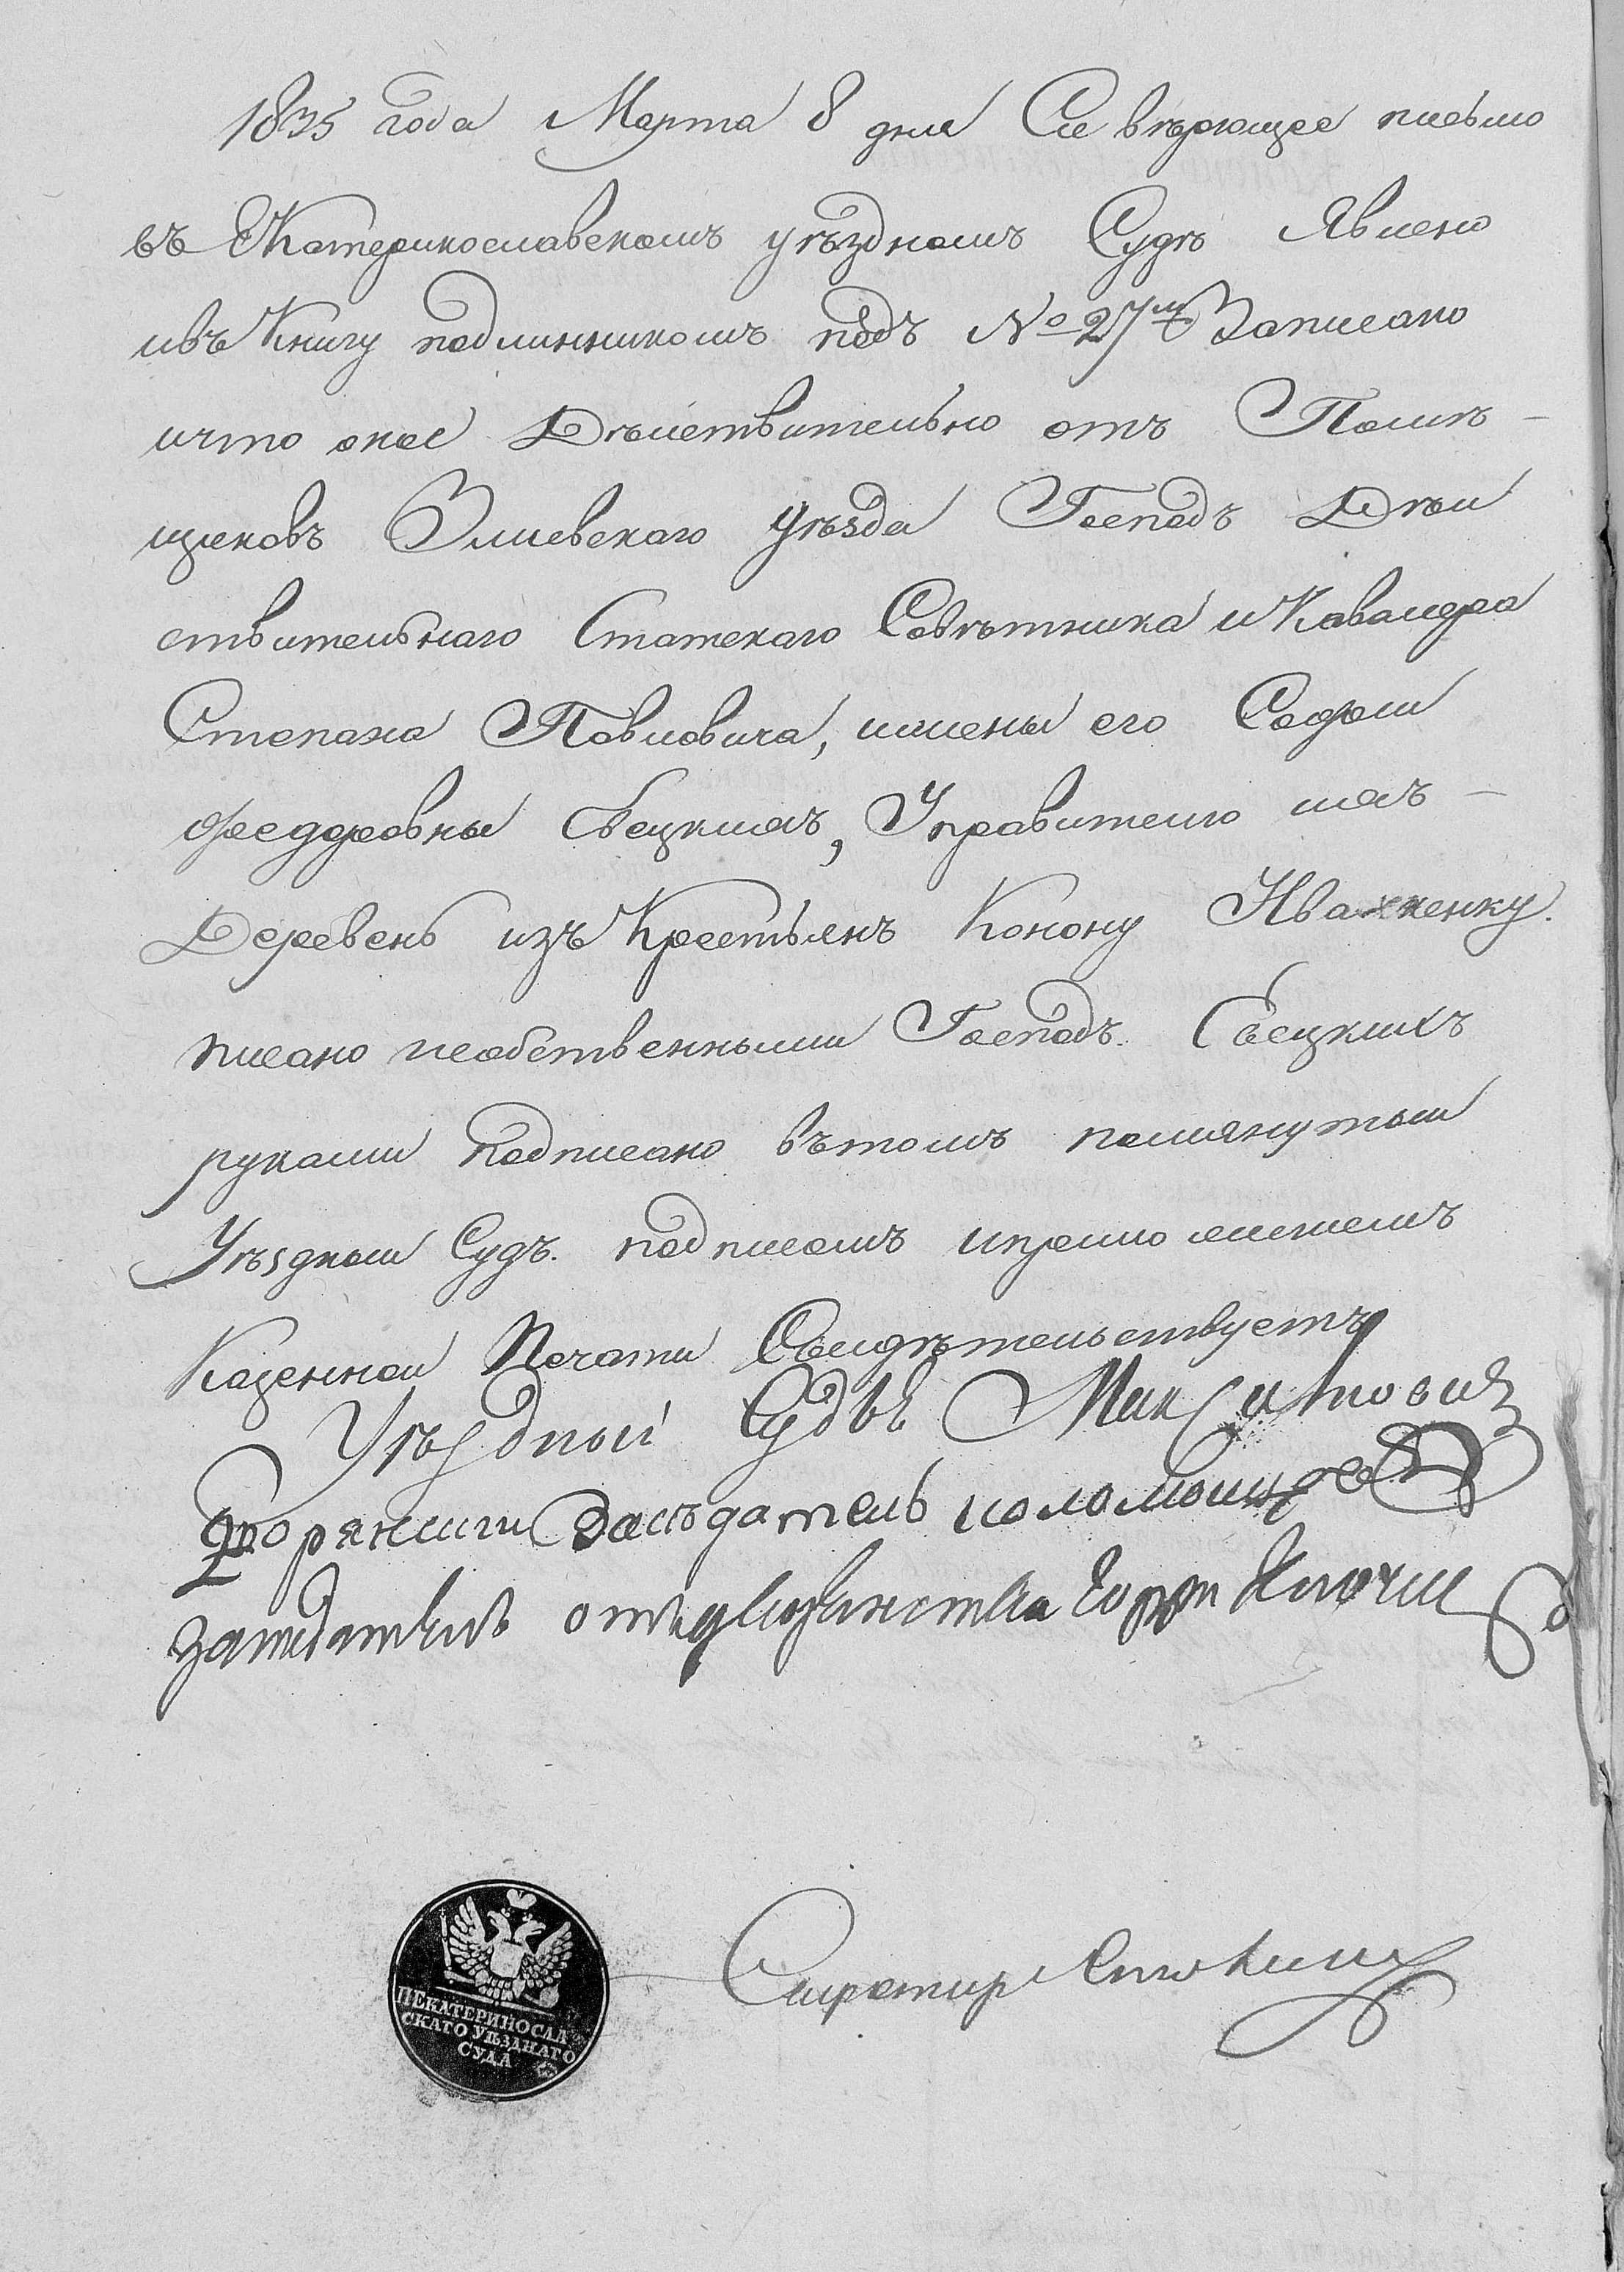 1835 года Марта 8 дня Сие верющее письмо
въ Екатеринославскомъ уѣздномъ Судѣ Явлено
ивъ Книгу подлинникомъ подъ № 27мъ Записано
ичто оное Дѣйствительно отъ Помѣ-
щиковъ Змиевскаго Уѣзда Господъ Дѣй
ствительнаго Статскаго Совѣтника и Кавалера
Степана Павловича, ижены его Софьи
Федоровны Сбецкихъ, Управителю ихъ-
Деревень изъ Крестьянъ Конону Ивахненку.
писано исобственными Господъ Сбецкихъ
руками подписано вътомъ помянутый
Уѣздный Судъ. подписомъ иприложениемъ
Казенной Печати Свидѣтельствуетъ
Уѣздный Судья
Дворянский Засѣдатель
Засѣдатель отъ дворянства
ЕКАТЕРИНОСЛА
СКАГО УѢЗДНАГО
СУДА
Секретарь